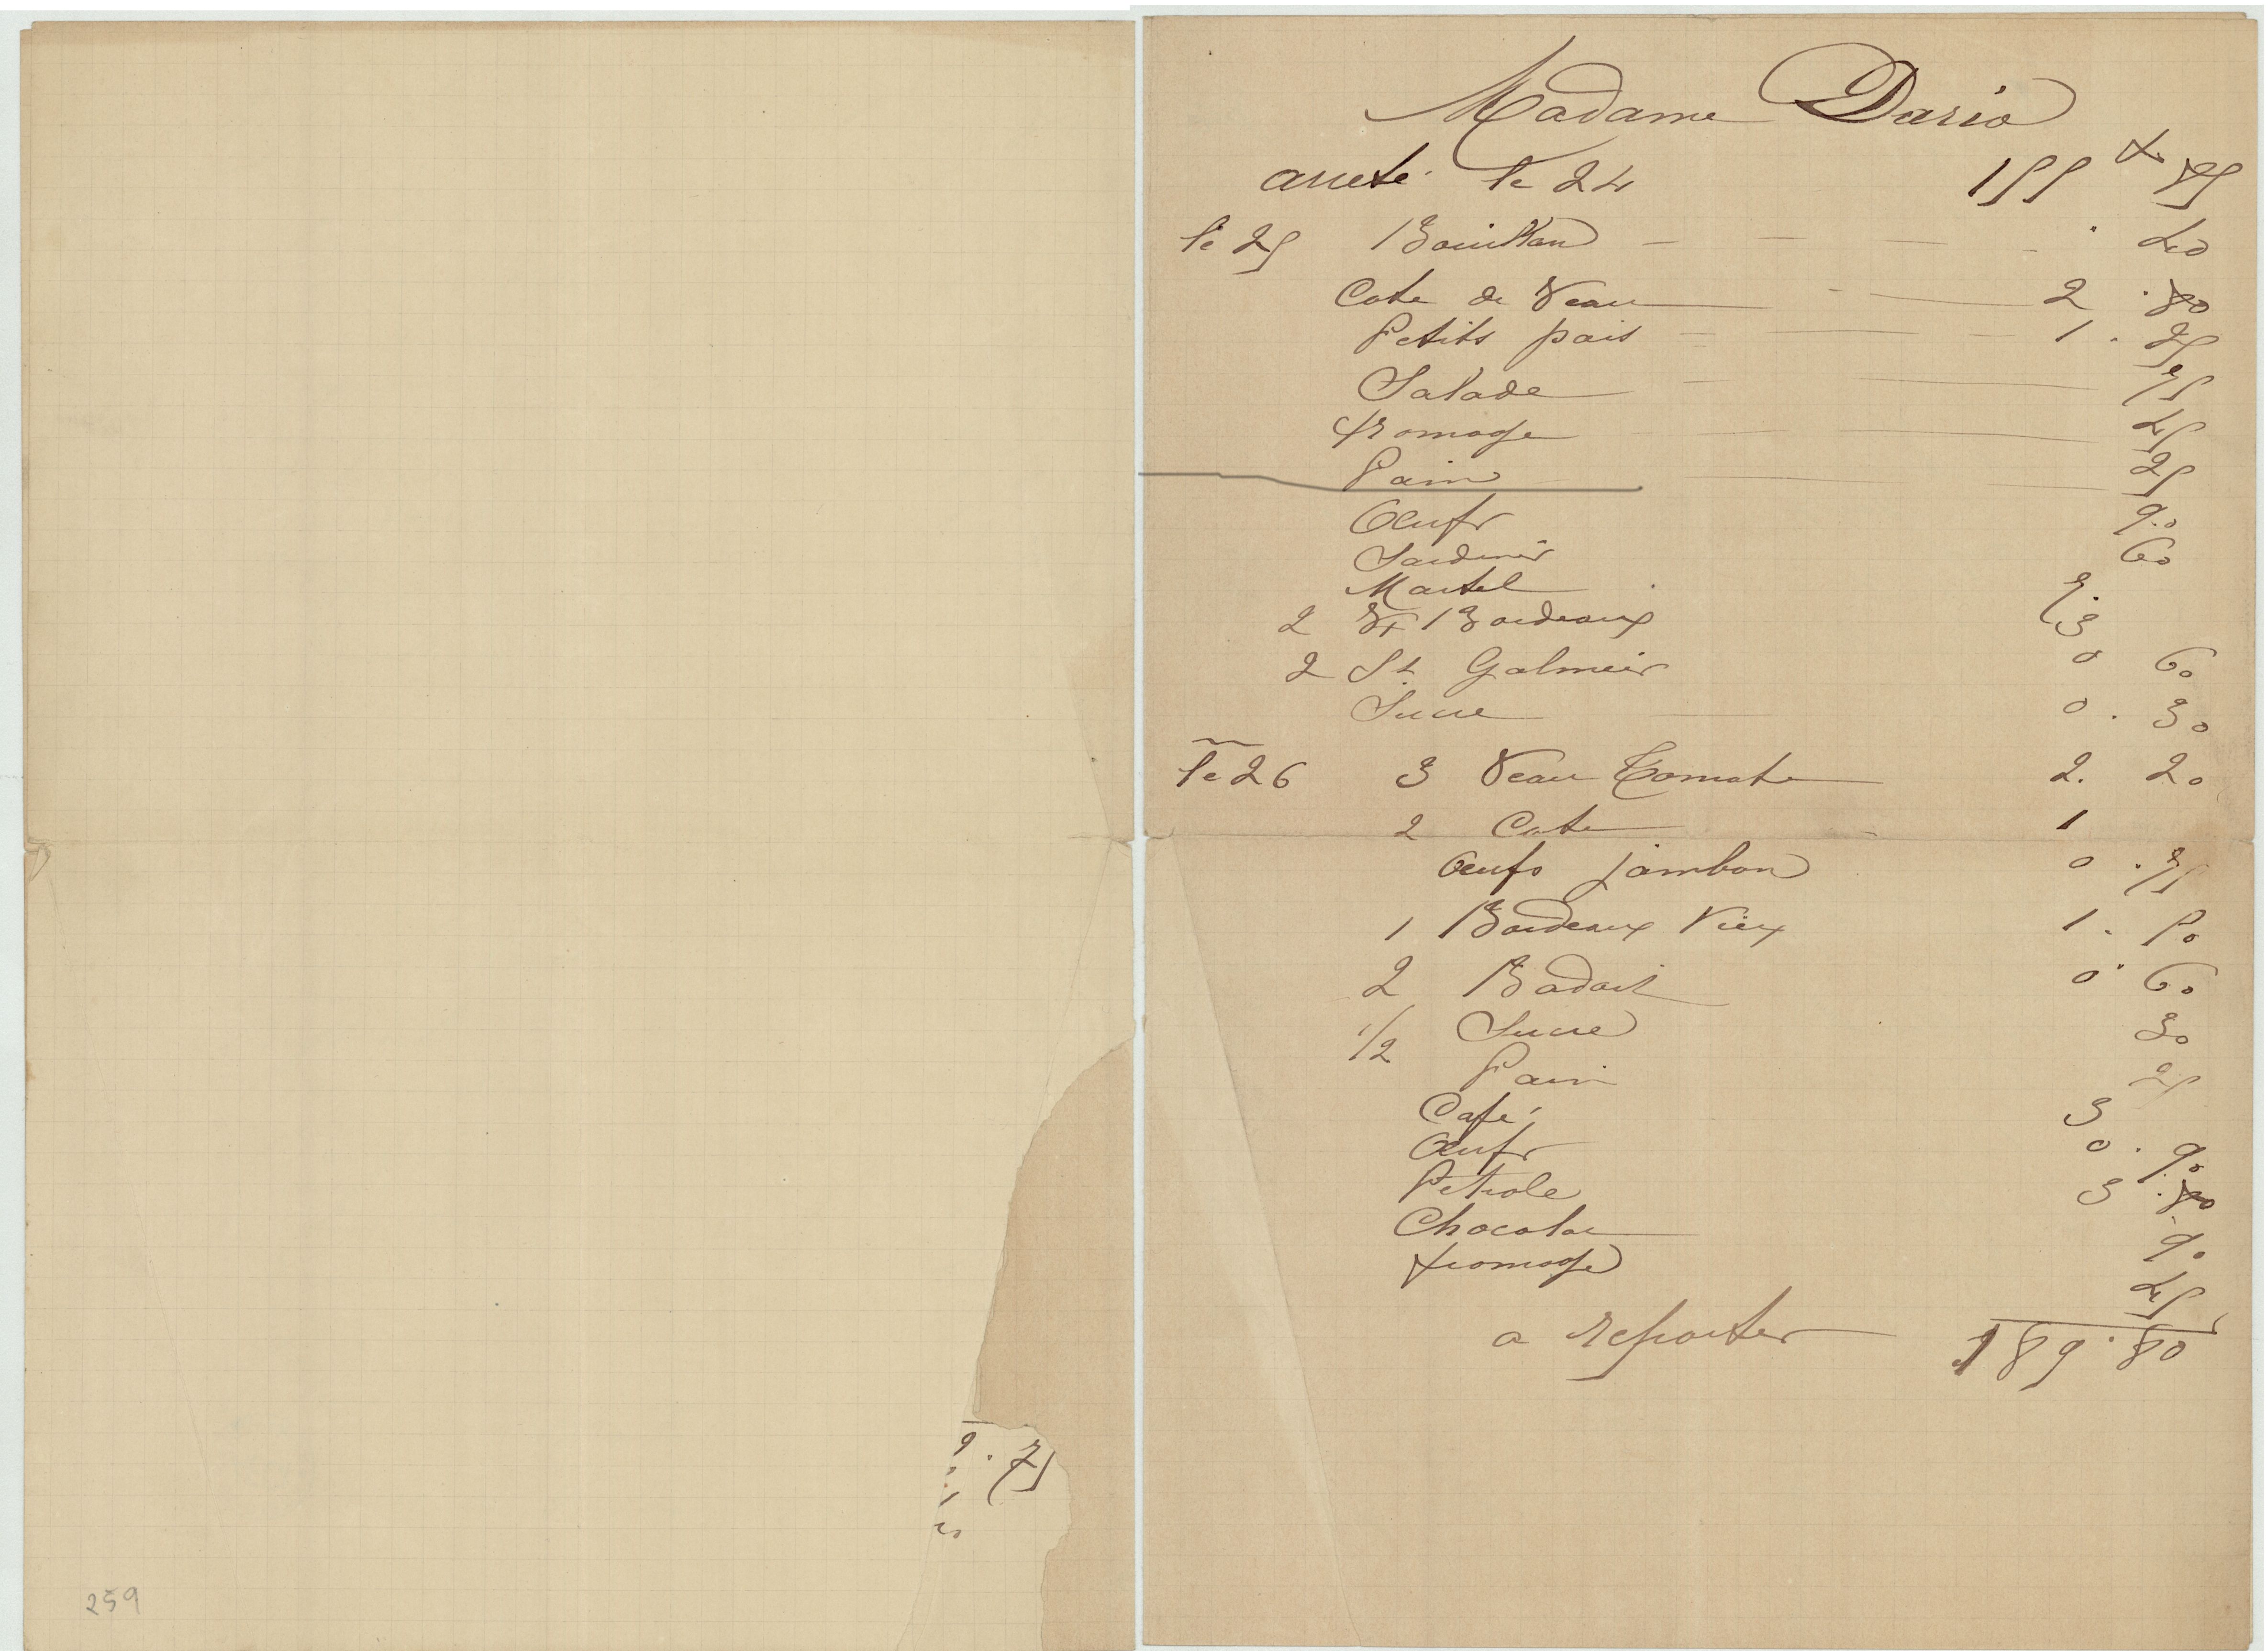 9 . 75
259
Madame Dario
arreté le 24 155 f. 85
le 25 Bouillon . 40
Cote de Veau 2 . 80
Petits pois 1 . 25
Salade 75
fromage 45
Pain 25
Oeufs 90
Sardines 60
Martel 7.
2 Bordeaux 3
2 St Galmier 0 60
Sucre 0 . 30
le 26 3 Veau Tomate 2. 20
2 Cote 1
Oeufs jambon 0 . 75
1 Bordeaux Vieux 1 . 50
2 Badoit 0 . 60
1/2 Sucre 30
Pain 25
Café 3
Oeufs 0 . 90
Petrole 3 . 80
Chocolat 90
fromage 45
a reporter 189.80